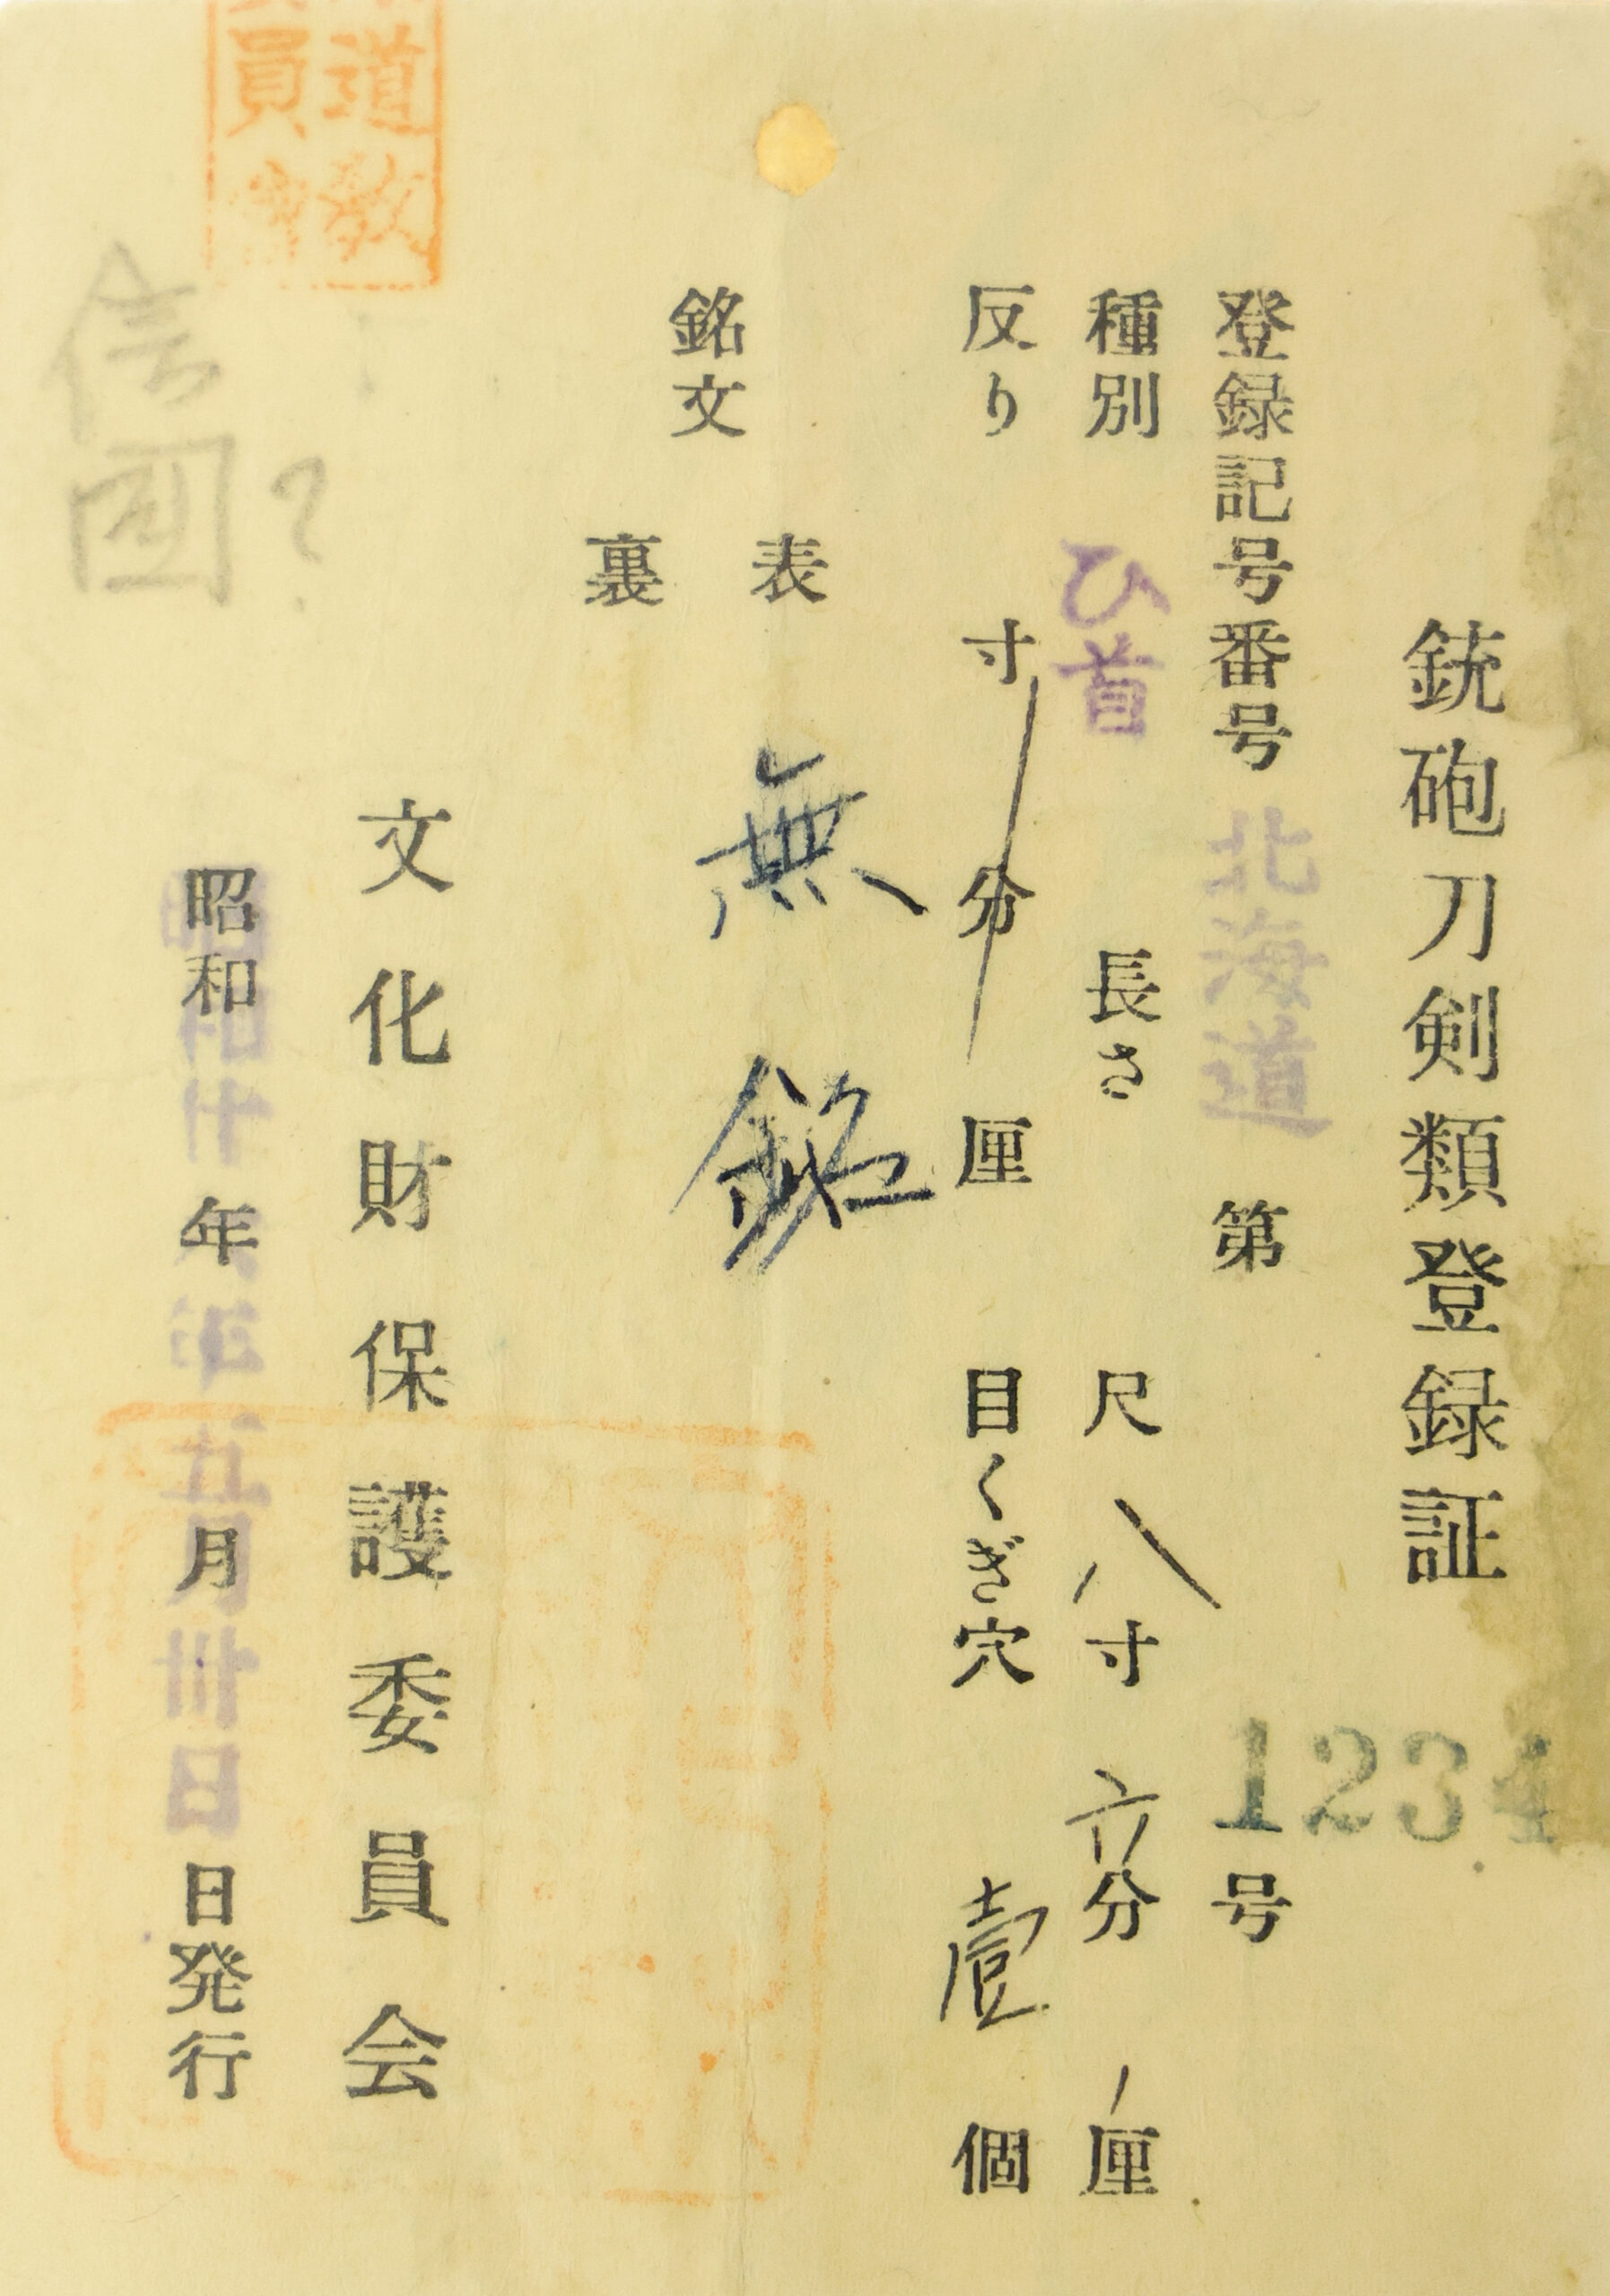 銃砲刀剣類登録証
登録記号番号 北海道 第 1234 号
種別 ひ首 長さ 尺 八 寸 六 分 厘
反り 寸 分 厘 目くぎ穴 壹 個
銘文
表 無銘
裏
文化財保護委員会
昭和 年 五 月 卅 日 日発行
信國?
道教
員會